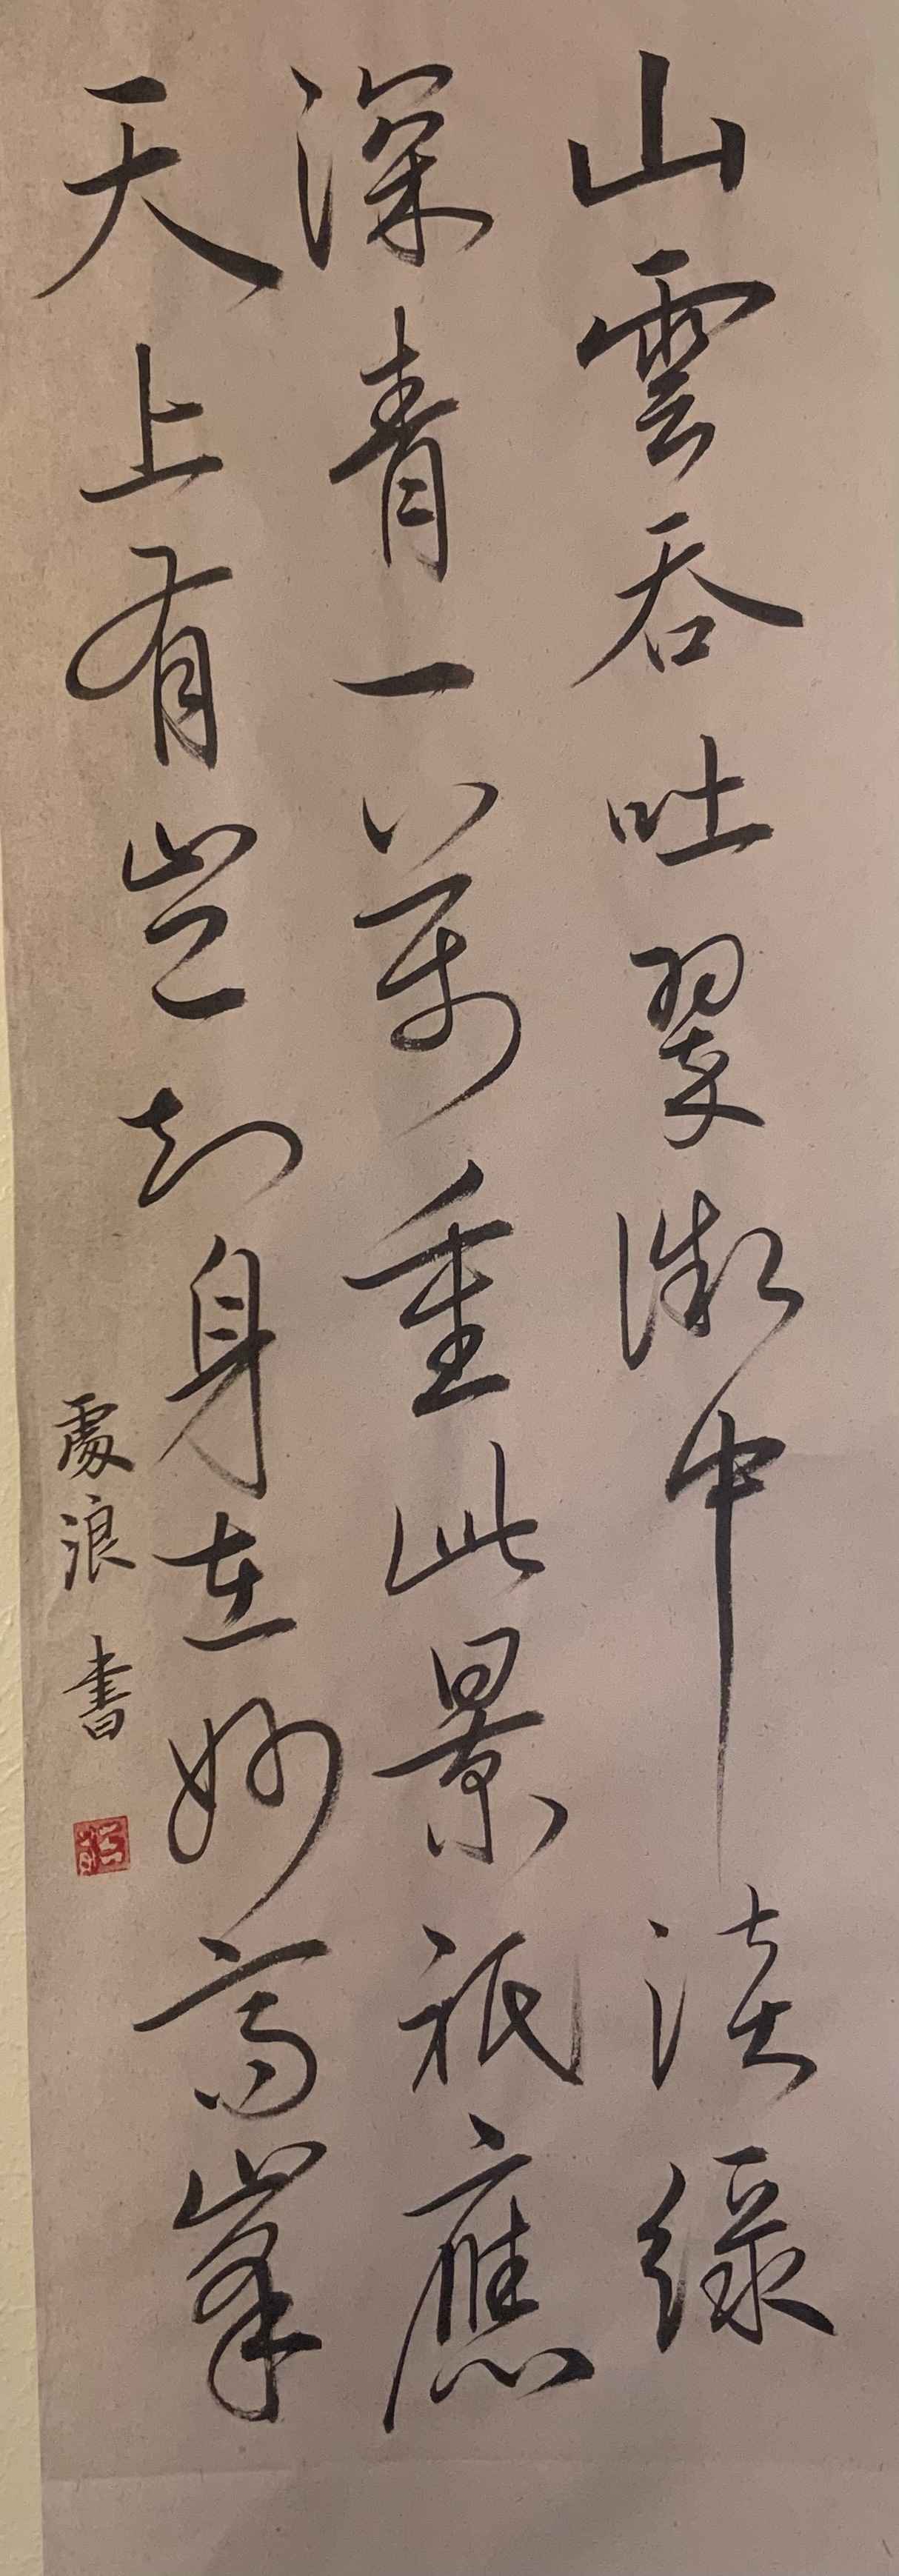 山雲吞吐翠微中淡綠
深青一萬重此景祇應
天上有豈知身在妙高峯
處浪書